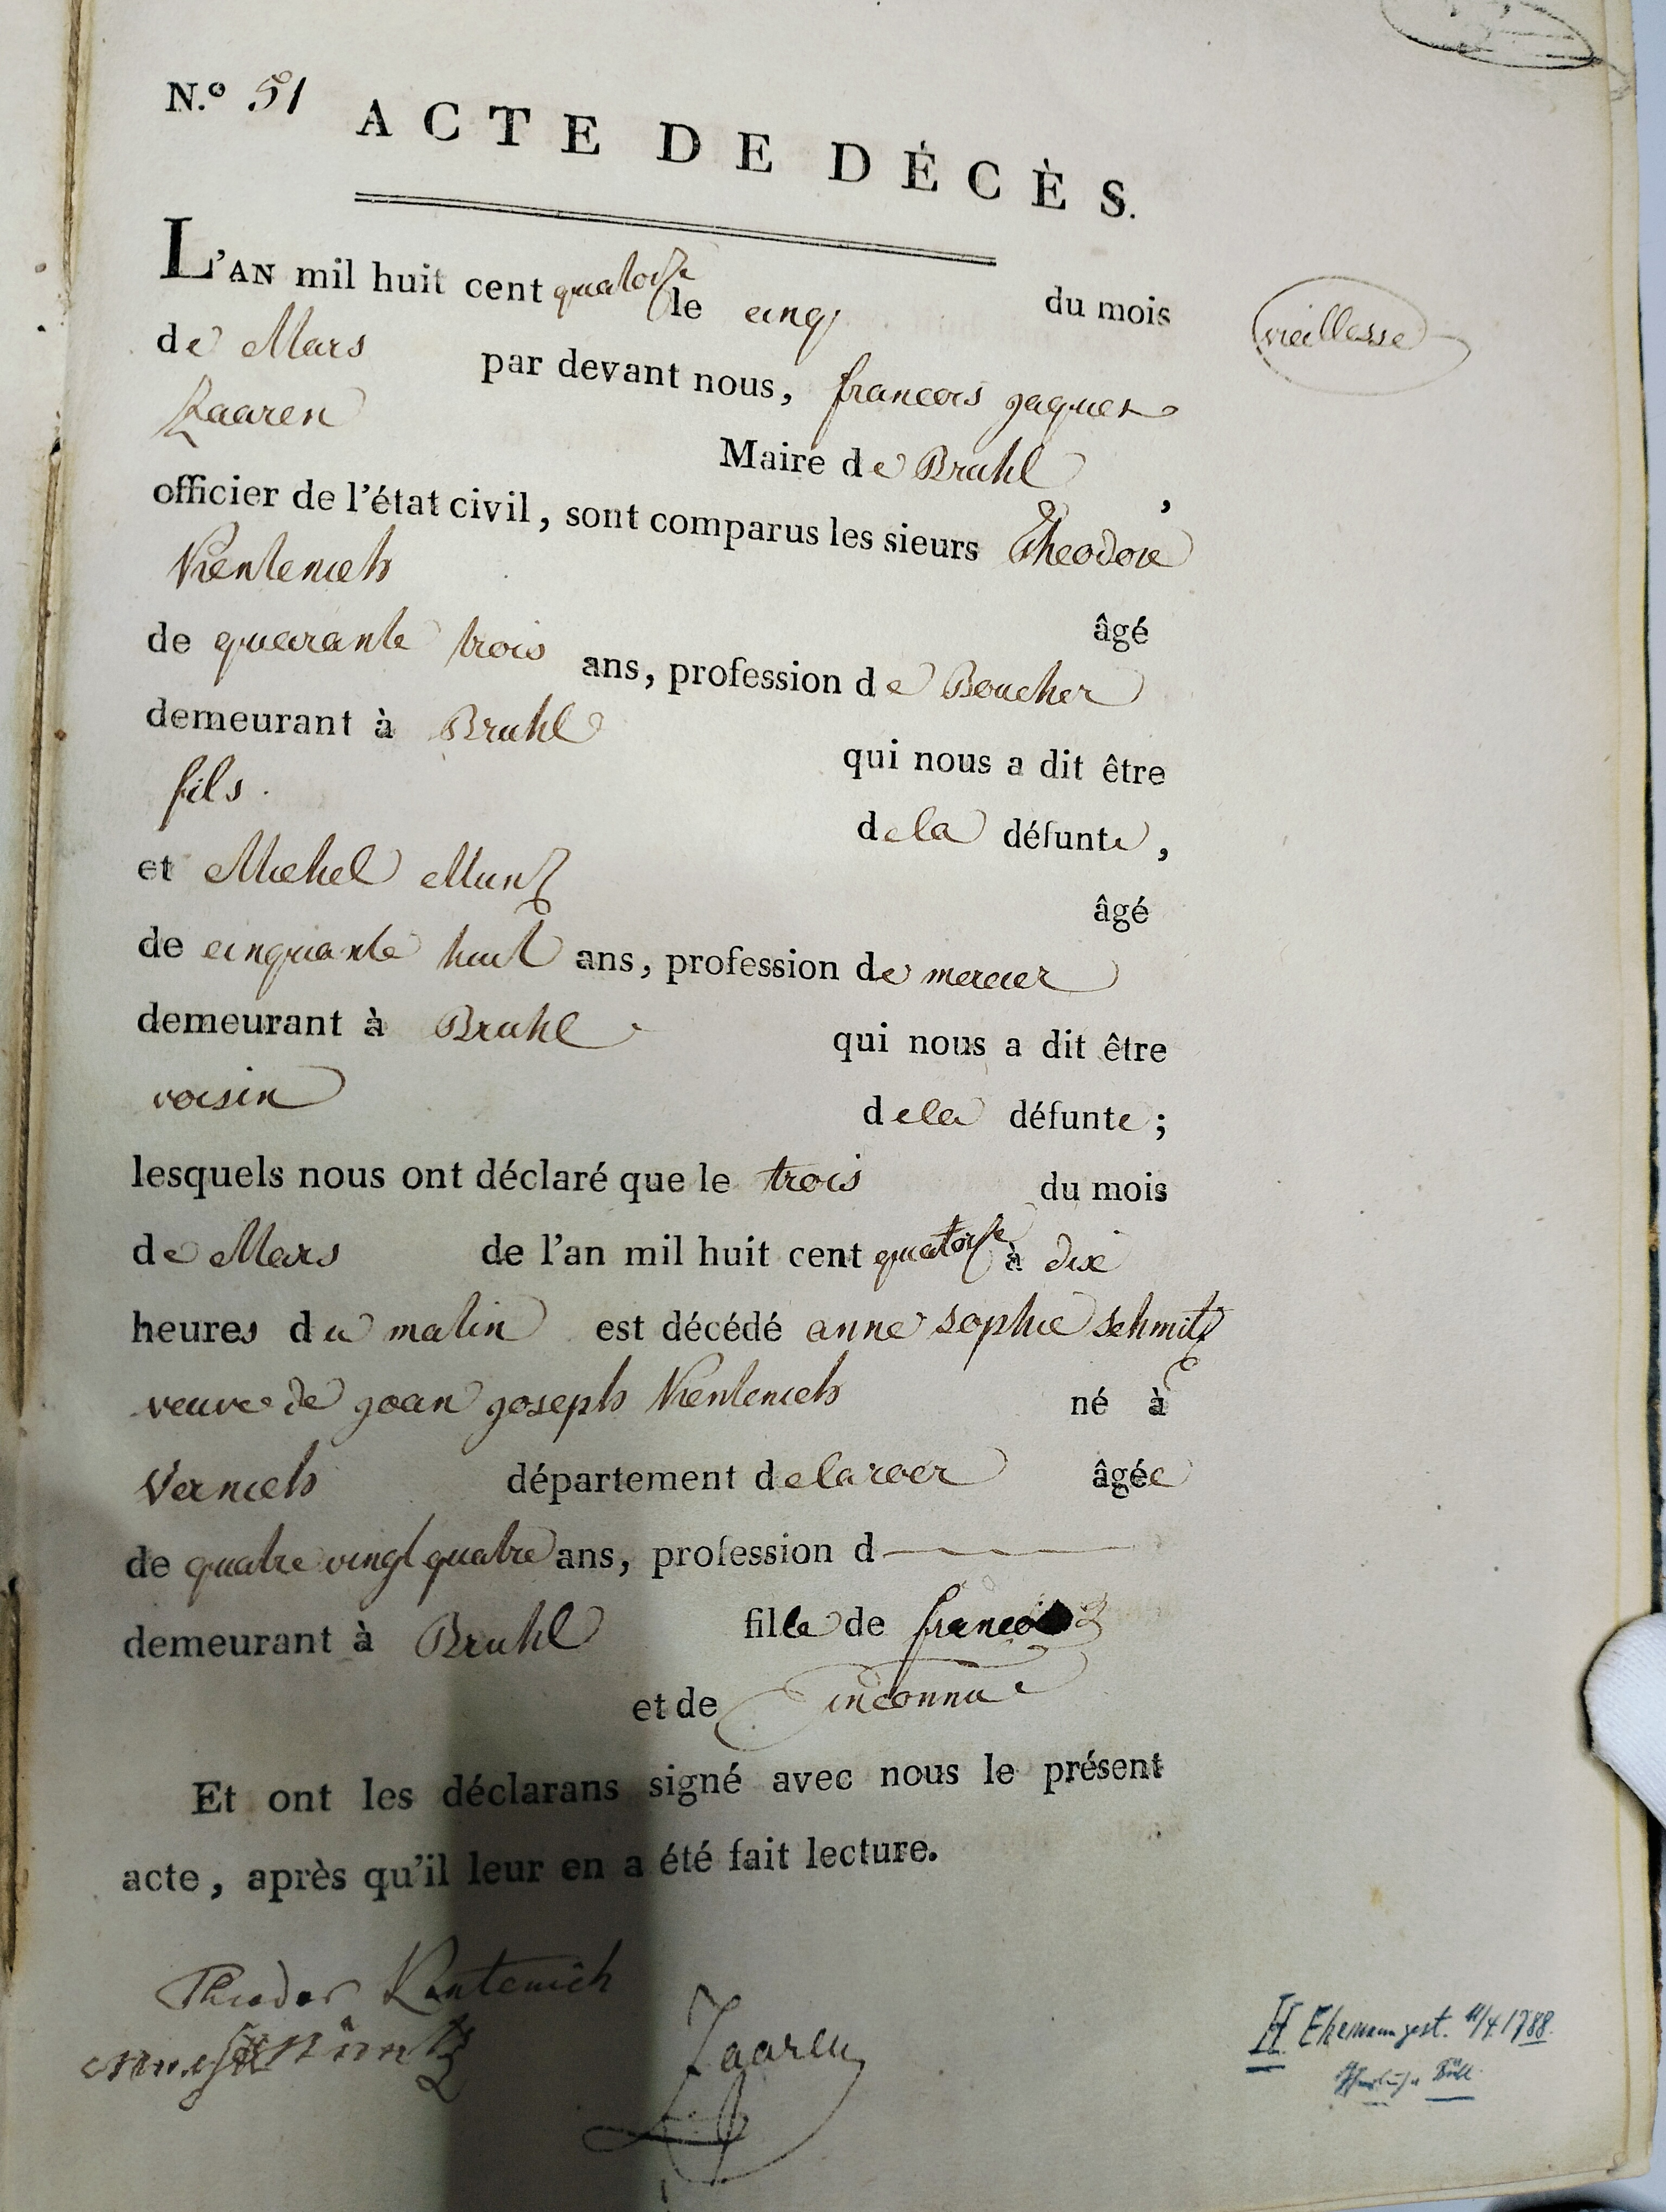 N.º 51 ACTE DE DÉCÈS.
L'AN mil huit cent quatorze le cinq du mois
vieillesse
de Mars par devant nous, francois jaques
Zaaren Maire de Bruhl,
officier de l'état civil, sont comparus les sieurs Theodore
Kentenich âgé
de quarante trois ans, profession de Boucher
demeurant à Bruhl qui nous a dit être
fils. de la défunte,
et Michel Muntz âgé
de cinquante huit ans, profession de mercier
demeurant à Bruhl qui nous a dit être
voisin de la défunte;
lesquels nous ont déclaré que le trois du mois
de Mars de l'an mil huit cent quatorze à dix
heures du matin est décédé anne sophie schmitz
veuve de joan joseph Kentenich né à
Vernich département de la roer âgée
de quatre vingt quatre ans, profession d
demeurant à Bruhl fille de francois
et de inconnue
Et ont les déclarans signé avec nous le présent
acte, après qu'il leur en a été fait lecture.
Theodor Kentenich
Müntz
Zaaren
H Ehemann gest. 11/4.1788.